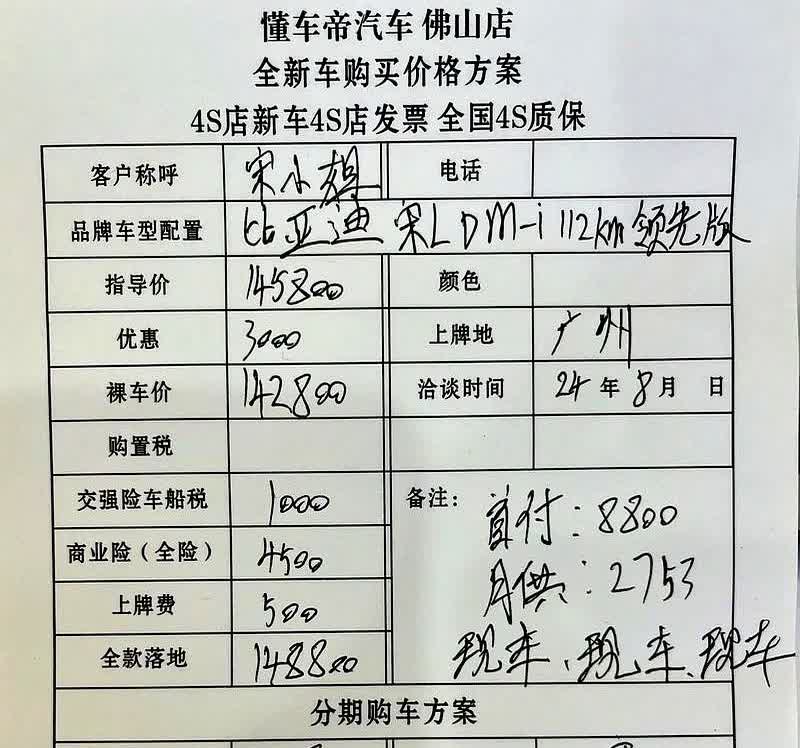 懂车帝汽车 佛山店
全新车购买价格方案
4S店新车4S店发票 全国4S质保
客户称呼 宋小姐 电话
品牌车型配置 比亚迪 宋L DM-i 112km 领先版
指导价 145800 颜色
优惠 3000 上牌地 广州
裸车价 142800 洽谈时间 24 年 8 月 日
购置税
交强险车船税 1000 备注: 首付:8800
商业险(全险) 4500 月供:2753
上牌费 500
全款落地 148800 现车、现车、现车
分期购车方案